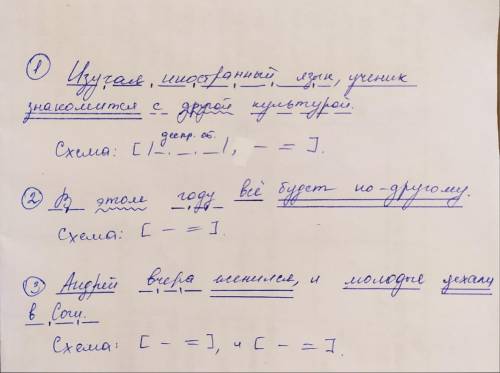 1 Изучая иностранный язык, ученик
знакомится с другой культурой.
деепр. об.
Схема: [ |_._._| , – = ].
2 В этом году всё будет по-другому.
Схема: [ – = ].
3 Андрей вчера женился, и молодые уехали
в Сочи.
Схема: [ – = ], и [ – = ].